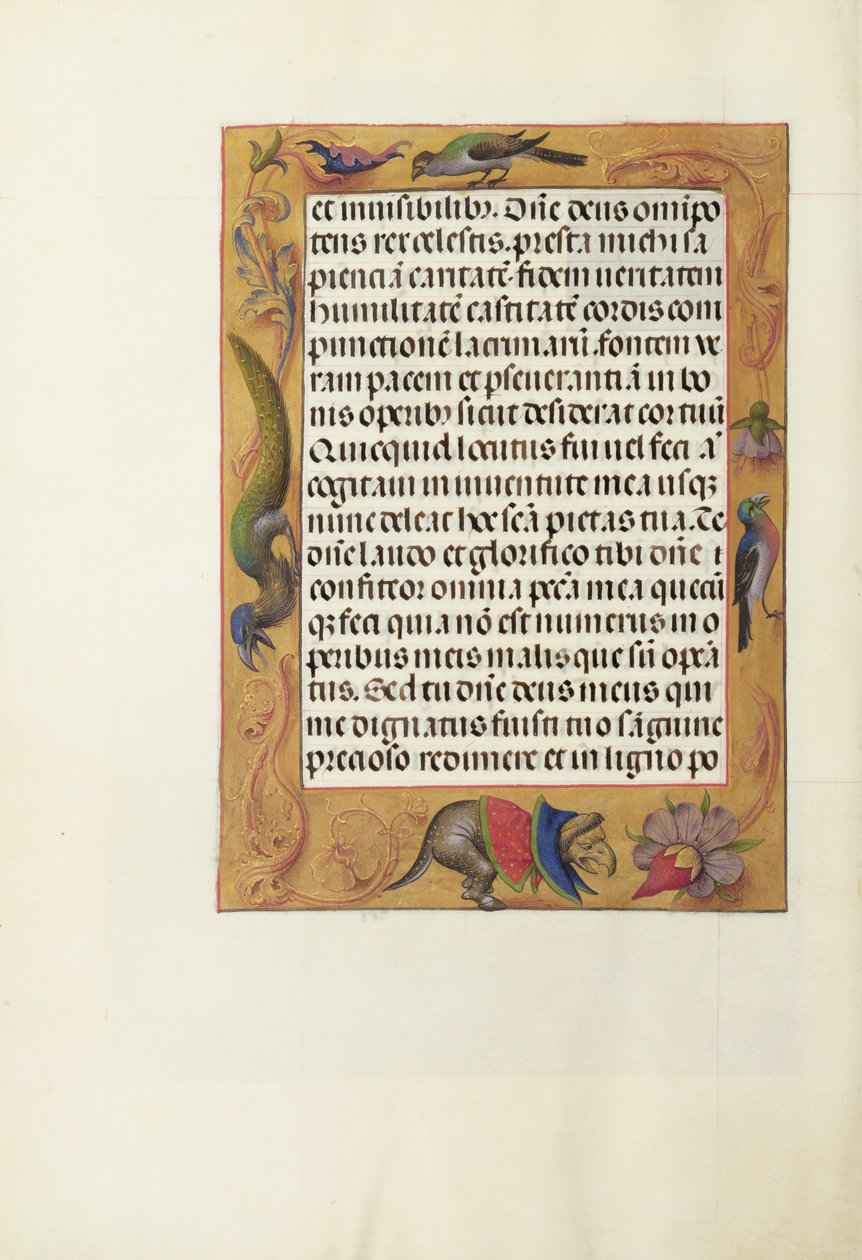 et inuisibilibꝫ. Dn̄e deus omīpo
tens rex celestis. presta michi sa
pienciā caritatē. fidem ueritatem
humilitatē castitatē cordis com
punctionē lacrimarū. fontem ve
ram pacem et ꝑseuerantiā in bo
nis operibꝫ sicut desiderat cor tuū
Quicquid locutus fui uel feci āˀ
cogitaui in iuuentute mea usqꝫ
nunc deleat hec scā pietas tua. Te
dn̄e laudo et glorifico tibi dn̄e ı
confiteor omnia pcc̄a mea quecū
qꝫ feci quia nō est numerus in o
peribus meis malis que sū opeā
tus. Sed tu dn̄e deus meus qui
me dignatus fuisti tuo sāguine
precioso redimere et in ligno po